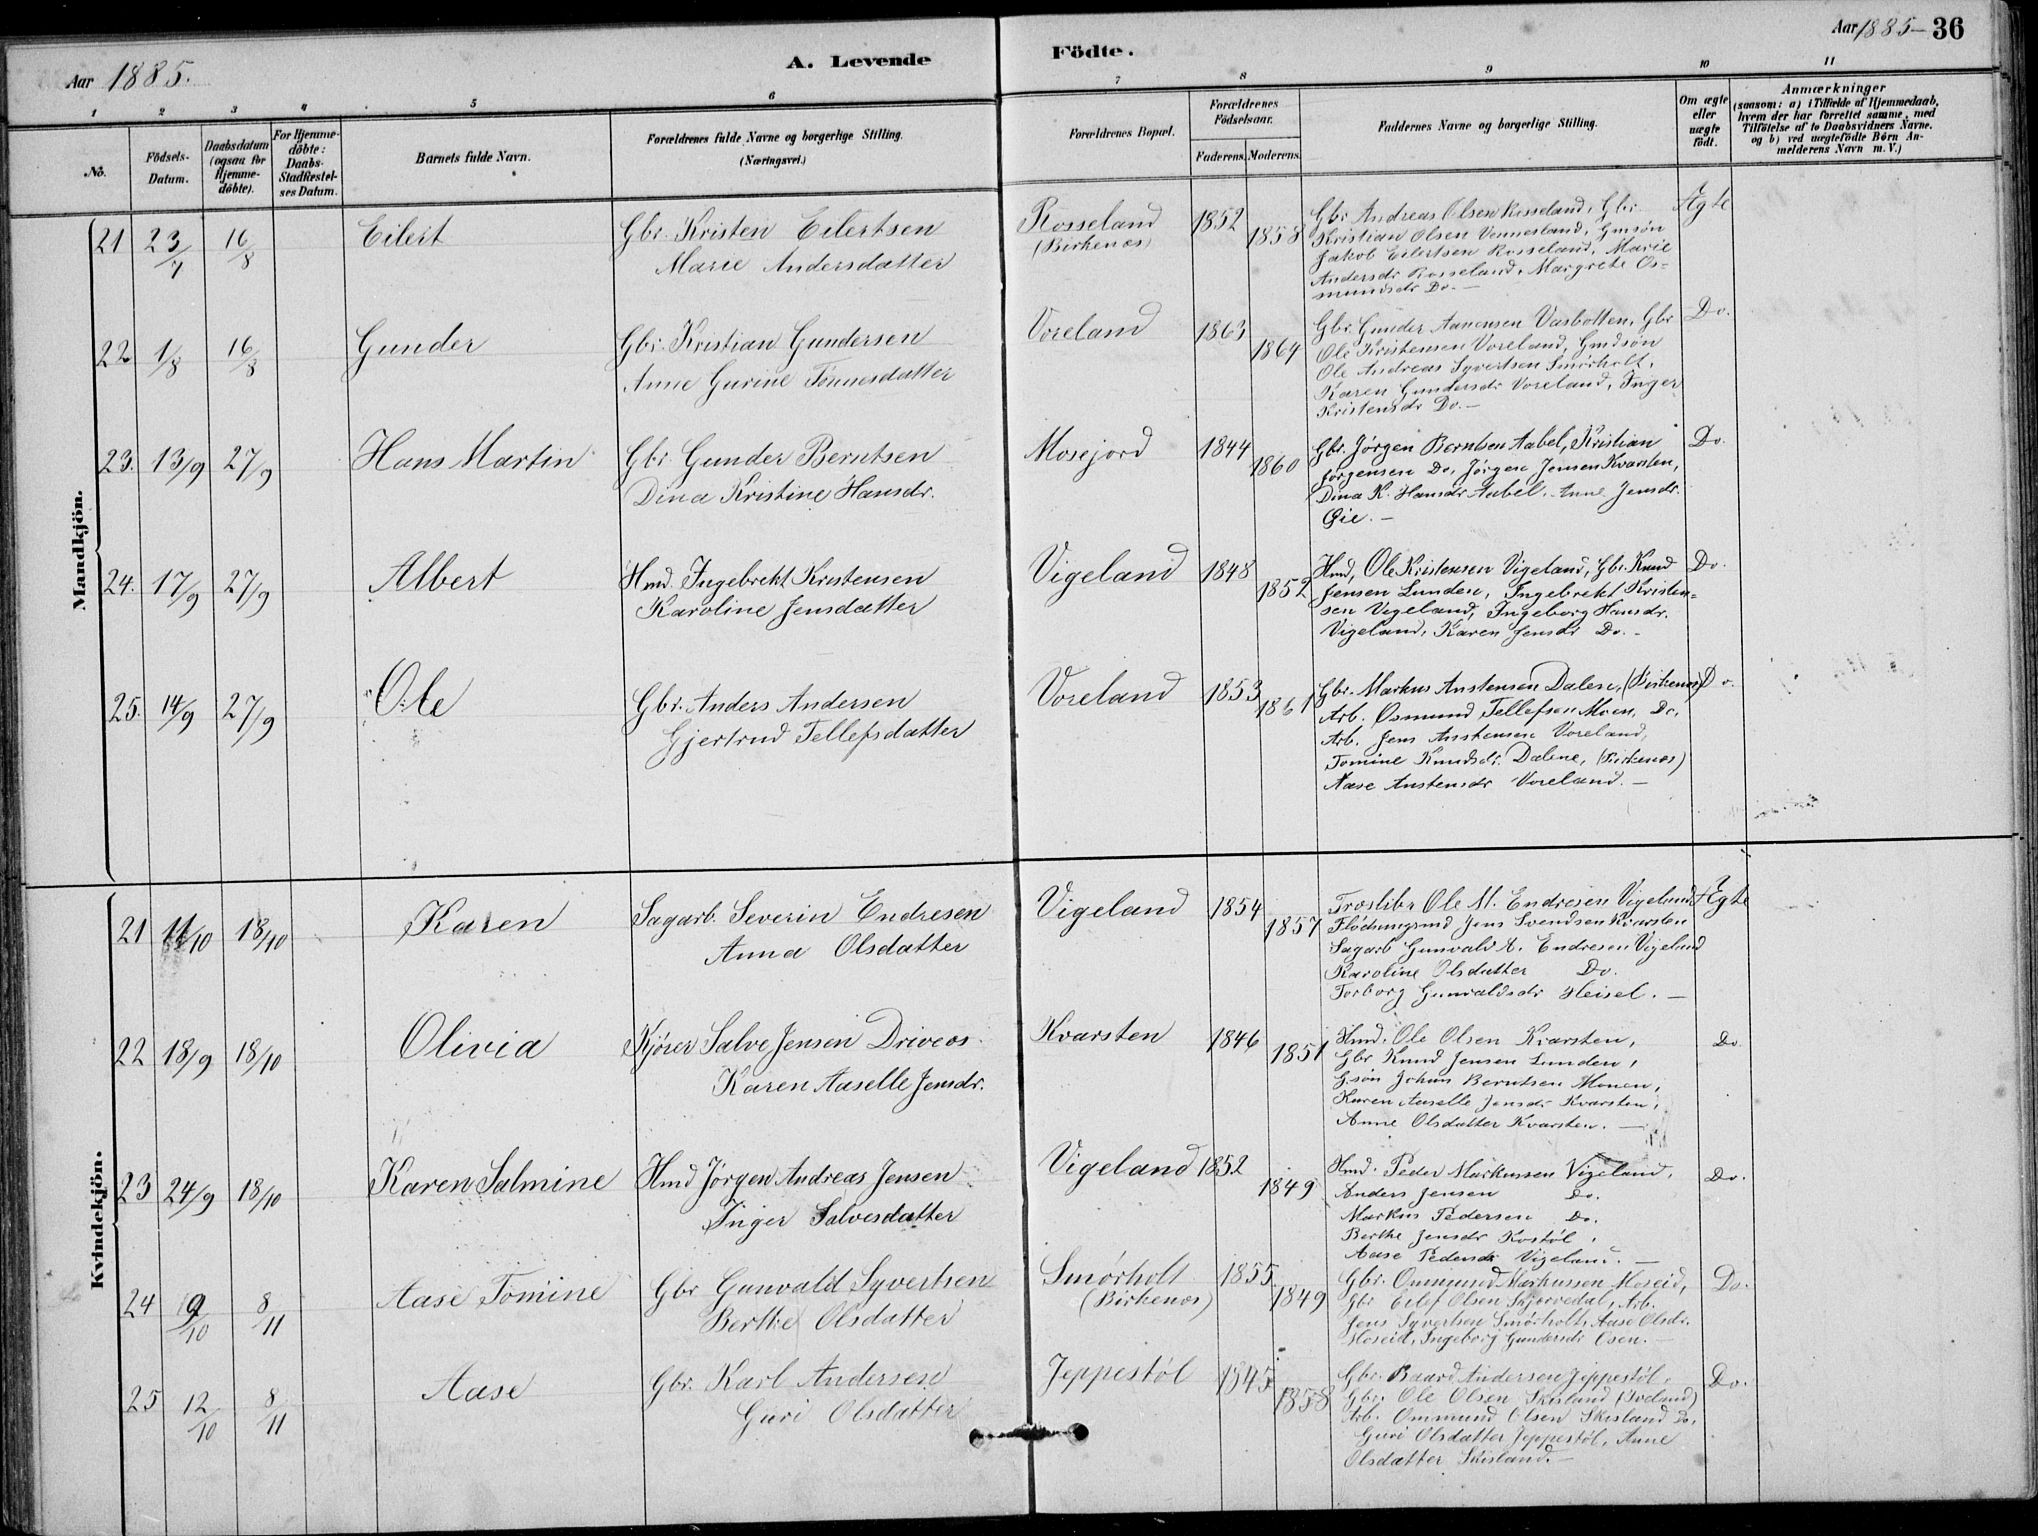 Aar 1885.
A. Levende
Födte.
Aar 1885 36
1 2 3 4 5 6 7 8 9 10 11
No.
Födsels-Datum.
Daabsdatum (ogsaa for Hjemme-döbte).
For Hjemme-döbte: Daabs-Stadfæstel-ses Datum.
Barnets fulde Navn.
Forældrenes fulde Navne og borgerlige Stilling. (Næringsvei.)
Forældrenes Bopæl.
Forældrenes Födselsaar.
Faderens. Moderens.
Faddernes Navne og borgerlige Stilling.
Om ægte eller uægte födt.
Anmærkninger
(saasom: a) i Tilfælde af Hjemmedaab,
hvem der har forrettet samme, med
Tilföielse af to Daabsvidners Navne.
og b) ved uægtefödte Börn An-
melderens Navn m. V.)
Mandkjön.
21 23/7 16/8 Eilert
Gbr. Kristen Eilertsen
Marie Andersdatter
Rosseland
(Birkenes)
1852 1858
Gbr. Andreas Olsen Rosseland, Gbr.
Kristian Olsen Vennesland, Gmsøn
Jakob Eilertsen Rosseland, Marie
Andersdr Rosseland, Margrete Os-
mundsdr Do. —
Ægte
22 1/8 16/8 Gunder
Gbr. Kristian Gundersen
Anne Gurine Tønnesdatter
Voreland
1863 1864
Gbr. Gunder Aanensen Vasbotten, Gbr
Ole Kristensen Voreland, Gmdsøn
Ole Andreas Syvertsen Smørholt,
Karen Gundersdr Voreland, Inger
Kristensdr Do. —
Do.
23. 13/9 27/9 Hans Martin
Gbr. Gunder Berntsen
Dina Kristine Hansdr.
Mosejord
1844 1860
Gbr. Jørgen Berntsen Aabel, Kristian
Jørgensen Do, Jørgen Jensen Kvarsten,
Dina K. Hansdr Aabel. Anne Jensdr.
Øie. —
Do.
24. 17/9 27/9 Albert
Hmd. Ingebrekt Kristensen
Karoline Jensdatter
Vigeland
1848 1852
Hmd, Ole Kristensen Vigeland, Gbr. Knud
Jensen Lunden, Ingebrekt Kristen-
sen Vigeland, Ingeborg Hansdr.
Vigeland, Karen Jensdr Do. -
Do.
25. 14/9 27/9 Ole
Gbr. Anders Andersen
Gjertrud Tellefsdatter
Voreland
1853 1861
Gbr. Markus Anstensen Dalene, (Birkenes)
Arb. Osmund Tellefsen Moen, Do,
Arb. Jens Anstensen Voreland,
Tomine Knudsdr. Dalene, (Birkenes)
Aase Anstensdr Voreland. —
Do.
Kvindekjön.
21 11/10 18/10 Karen
Sagarb. Severin Endresen
Anna Olsdatter
Vigeland
1854 1857
Ole M. Endresen Vigeland
Jens Svendsen Kvarsten
Sagarb Gunvald A. Endresen Vigeland
Karoline Olsdatter Do.
Torborg Gunvaldsdr Heisel. —
Ægte
22 18/9 18/10 Olivia
Kjører Salve Jensen Driveos
Karen Aaselle Jensdr.
Kvarsten
1846 1851
Hmd. Ole Olsen Kvarsten,
Gbr Knud Jensen Lunden,
G.søn Johan Berntsen Monen,
Karen Aaselle Jensdr Kvarsten,
Anne Olsdatter Kvarsten. —
Do
23 24/9 18/10 Karen Salmine
Hmd Jørgen Andreas Jensen
Inger Salvesdatter
Vigeland
1852 1849
Hmd. Peder Markussen Vigeland,
Anders Jensen Do.
Markus Pedersen Do.
Berthe Jensdr Kostøl,
Aase Pedersdr Vigeland. —
Do.
24 9/10 8/11 Aase Tomine
Gbr Gunvald Syvertsen
Berthe Olsdatter
Smørholt
(Birkenes)
1855 1849
Gbr. Ommund Markussen Moseid,
Gbr Eilef Olsen Skjærvedal, Arb.
Jens Syvertsen Smørholt, Aase Olsdr.
Moseid, Ingeborg Gundersdr Osen. —
Do.
25 12/10 8/11 Aase
Gbr. Karl Andersen
Guri Olsdatter
Jeppestøl
1845 1858
Gbr. Baard Andersen Jeppestøl,
Gbr. Ole Olsen Skisland (Iveland)
Arb. Ommund Olsen Skisland Do,
Guri Olsdatter Jeppestøl, Anne
Olsdatter Skisland. —
Do.